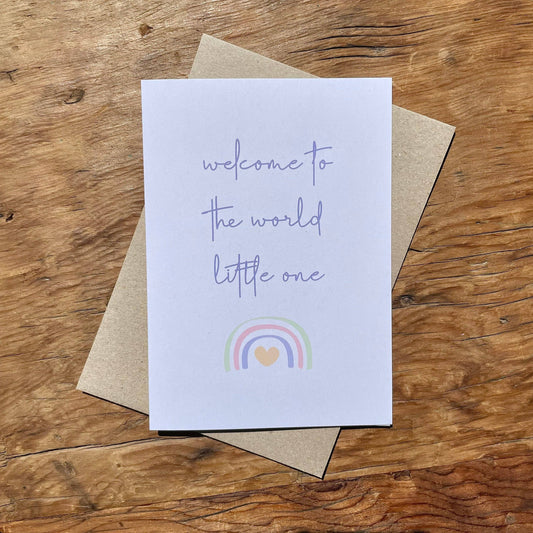 welcome to
the world
little one